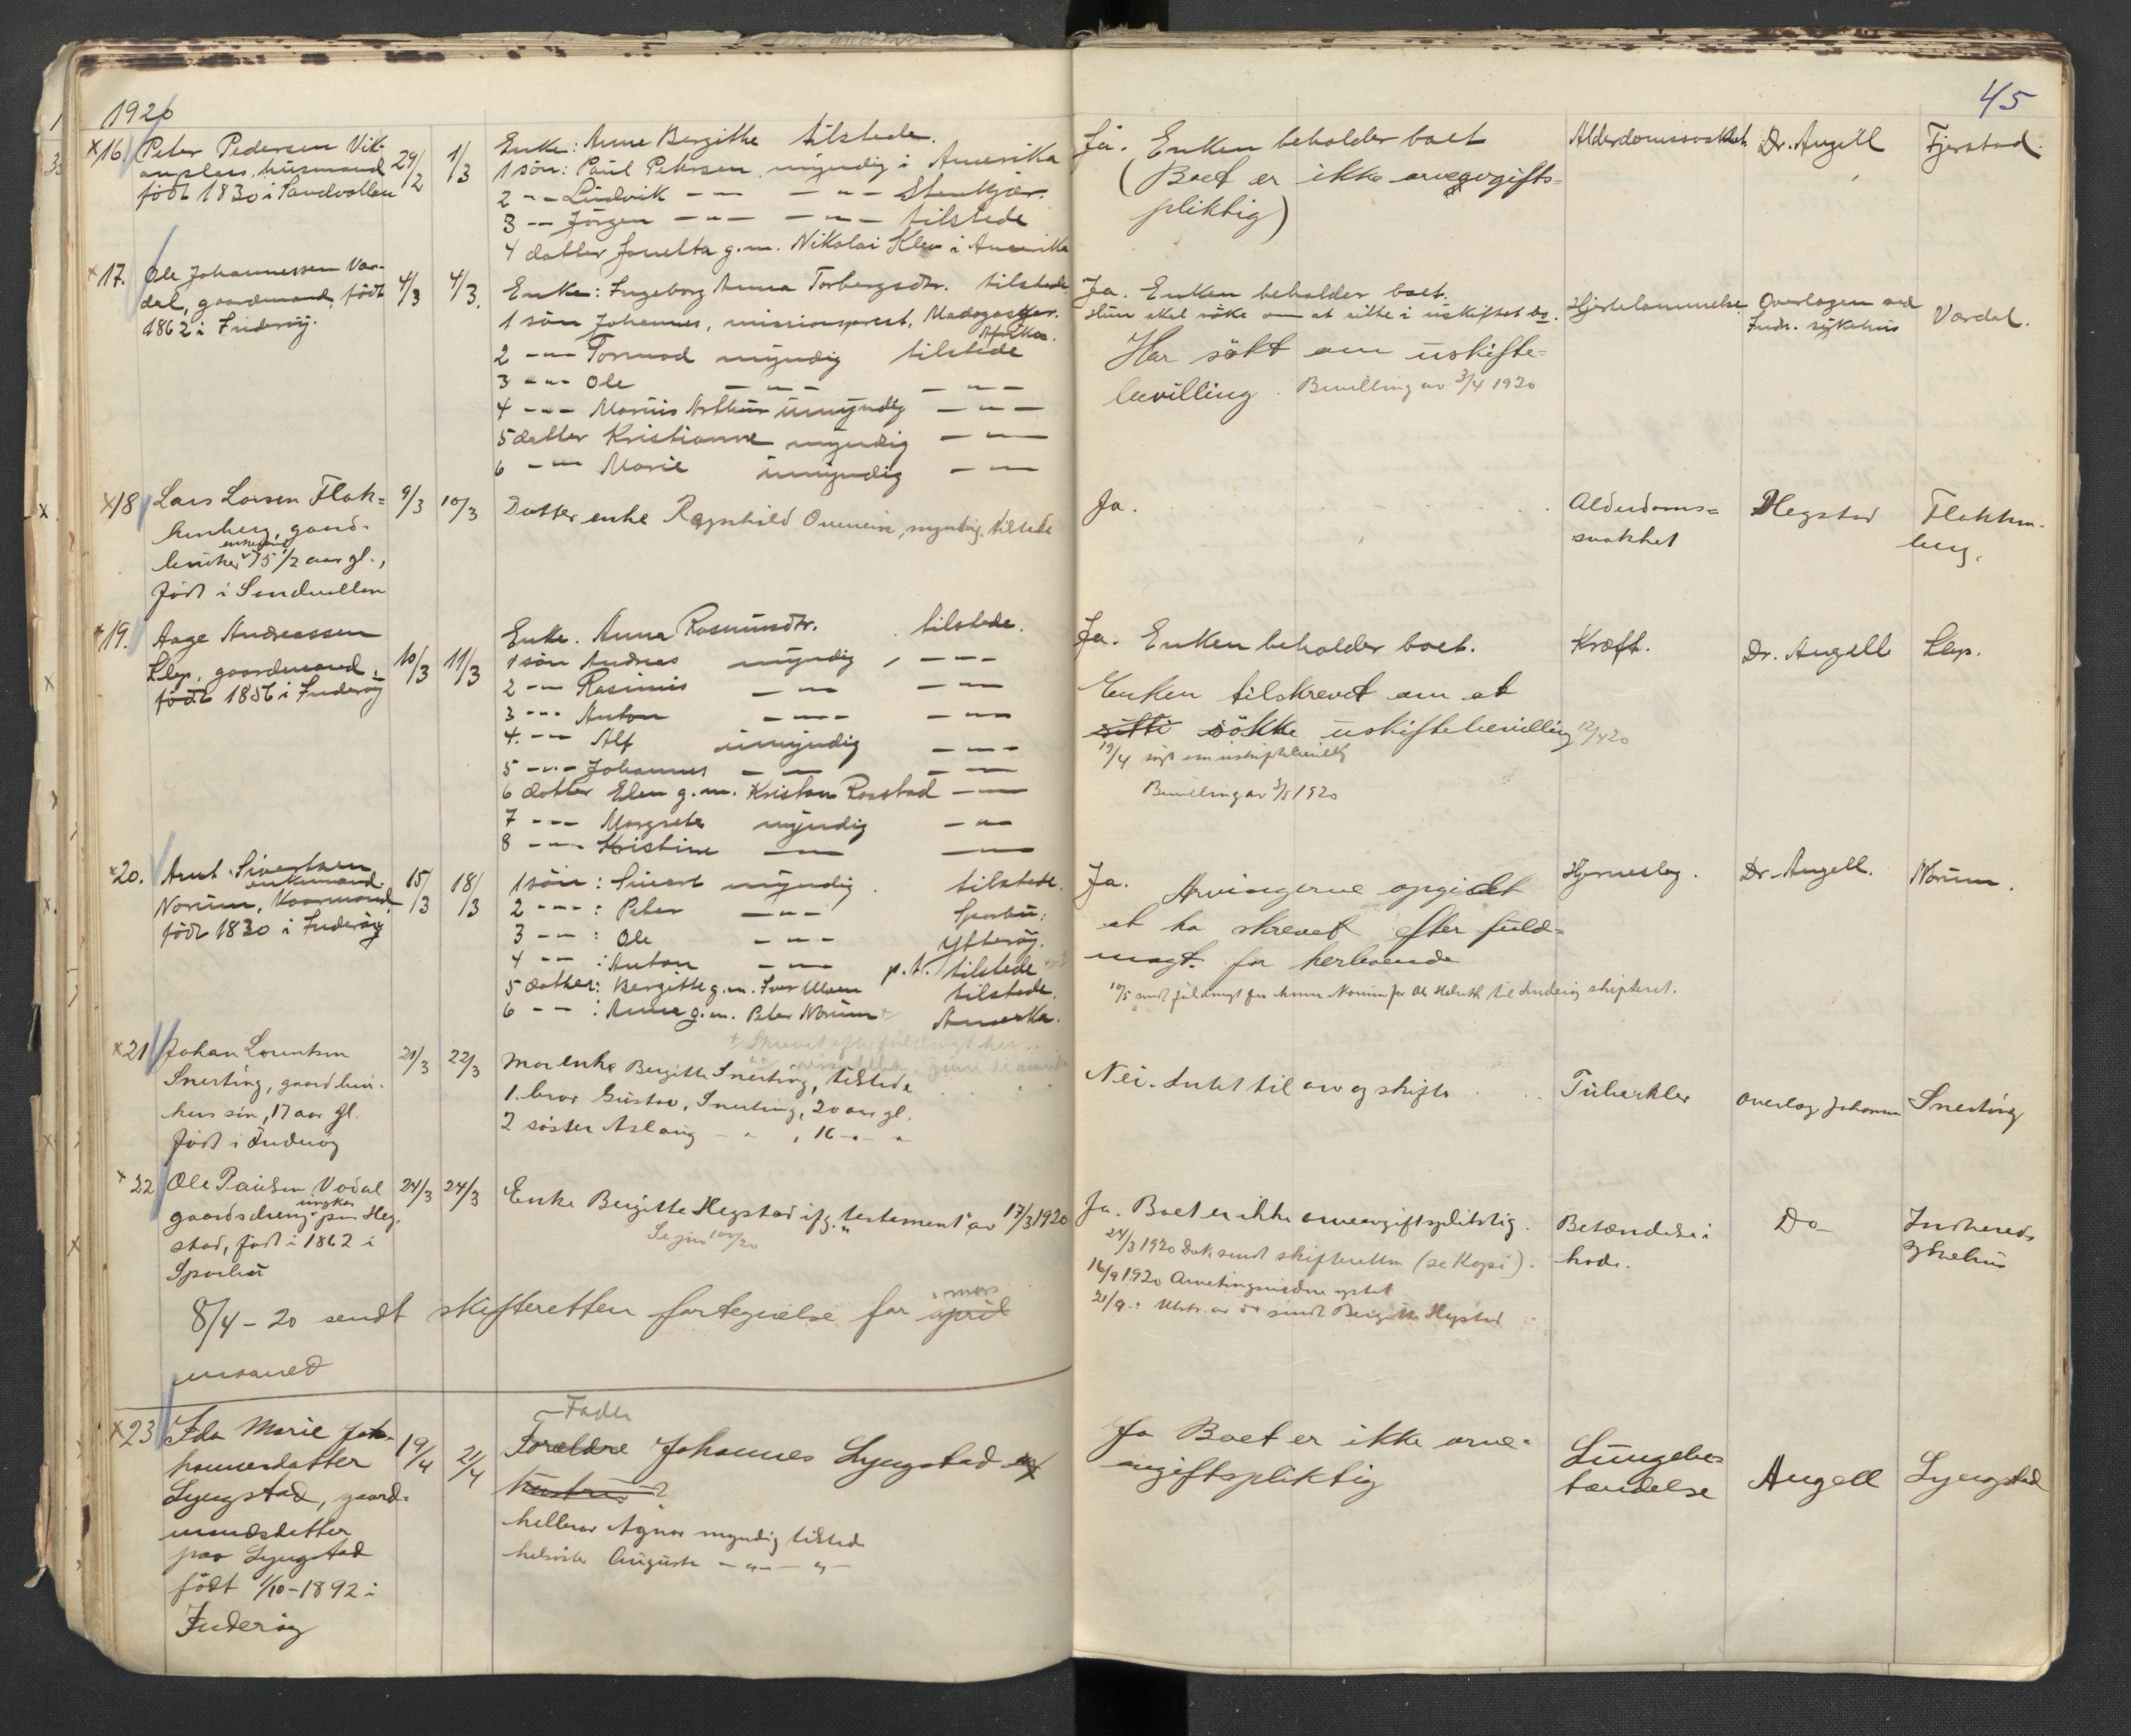 1920
45
x16. Peter Pedersen Vik-
anplass, husmand
født 1830 i Sandvollan
29/2
1/3
Enke: Anne Bergithe tilstede.
1 sön: Paul Petersen, myndig i Amerika
2 -- Ludvik -"- -"- Stenkjær.
3 -- Jörgen -"- -"- tilstede
4 datter Jonetta g.m. Nikolai Klev i Amerika
Ja. Enken beholder boet
(Boet er ikke arveavgifts-
pliktig)
Alderdomssvakhet
Dr. Angell
Fjerstad.
x17. Ole Johannessen Vær-
dal, gaardmand, født
1862 i Inderøy.
4/3
4/3.
Enke: Ingeborg Anna Torbergsdtr. tilstede
1 sön Johannes, missionsprest, Madagaskar.
Afrika.
2 -"- Tormod myndig tilstede
3 -"- Ole -"- -"-
4 -"- Marius Arthur umyndig -"-
5 datter Kristianne myndig -"-
6 -"- Marie umyndig -"-
Ja. Enken beholder boet.
Hun skal söke om at sitte i uskiftet bo.
Har søkt om uskifte-
bevilling. Bevilling av 3/4 1920
Hjertelammelse
Overlægen ved
Indh. sykehus
Værdal.
x18 Lars Larsen Flak-
kenberg, gaard-
bruker enkemand 75 1/2 aar gl.,
født i Sandvollan
9/3
10/3
Datter enke Ragnhild myndig, tilstede
Ja.
Alderdoms-
svakhet
Hegstad
Flakken-
berg.
x19. Aage Andreassen
Klep, gaardmand,
født 1856 i Inderøy
10/3
11/3
Enke. Anna Rasmusdtr. tilstede.
1 sön Andreas myndig, -"-
2 -"- Rasmus -"- -"-
3 -"- Anton -"- -"-
4. -"- Alf umyndig -"-
5 -"- Johannes -"- -"-
6 datter Elen g.m. Kristen Rostad -"-
7 -"- Margrete myndig -"-
8 -"- Kristine -"- -"-
Ja. Enken beholder boet.
Enken tilskrevet om at
sitte søkke uskiftebevilling 12/4 20
19/4 søgt om uskiftebevilling
Bevilling av 3/5 1920
Kræft.
Dr. Angell
Klep.
x20. Arnt Sivertsen
enkemand
Norum, kaarmand,
født 1830 i Inderøy
15/3
18/3
1 sön: Sivert myndig. tilstede.
2 -"-: Peter -"- Sparbu.
3 -"-: Ole -"- Ytterøy.
4 -"-: Anton -"- p.t. tilstede
5 datter: Bergitte g.m. Iver tilstede.
6 -"-: Anna g.m. Peter Norum + Amerika.
+ Skrevet efter fuldmagt her
Ja. Arvingerne opgidet
at ha skrevet efter fuld-
magt. for herboende
10/5 sendt fuldmagt fra Anna Norum for Ole til Inderøy skifteret.
Hjerneslag.
Dr. Angell.
Norum.
x21 Johan Lorentsen
Snerting, gaardbru-
kers søn, 17 aar gl.
født i Inderøy
21/3
22/3
Mor enke Bergitte Snerting, tilstede
1. bror Gustav, Snerting, 20 aar gl.
2 søster Aslaug -"-, 16 -"- "
Nei. Intet til arv og skifte
Tuberkler
Overlæg. Johannes
Snerting
x22 Ole Paulsen Vodal
ungkar
gaardsdreng paa Heg-
stad, født i 1862 i
Sparbu
24/3
24/3
Enke Bergitte Hegstad ifg. "testament" av 17/3 1920
Se jnr 100/20
Ja. Boet er ikke arveavgiftspliktig.
24/3 1920 Dok sendt skifteretten (se Kopi).
16/9 1920
21/9: Utskr. av do sendt Bergitte Hegstad
Betændelse i
hode.
Do
Indhereds
sykehus
8/4 - 20 sendt skifteretten fortegnelse for april mars
maaned
x23 Ida Marie Jo-
hannesdatter
Lyngstad, gaard-
mandsdatter
paa Lyngstad
født 1/10-1892 i
Inderøy
19/4
21/4
Fader
Forældre Johannes Lyngstad og
hustru ?
helbror Agnar myndig tilstede
helsøster Augusta -"- -"-
Ja Boet er ikke arve-
avgiftspliktig
Lungebe-
tændelse
Angell
Lyngstad